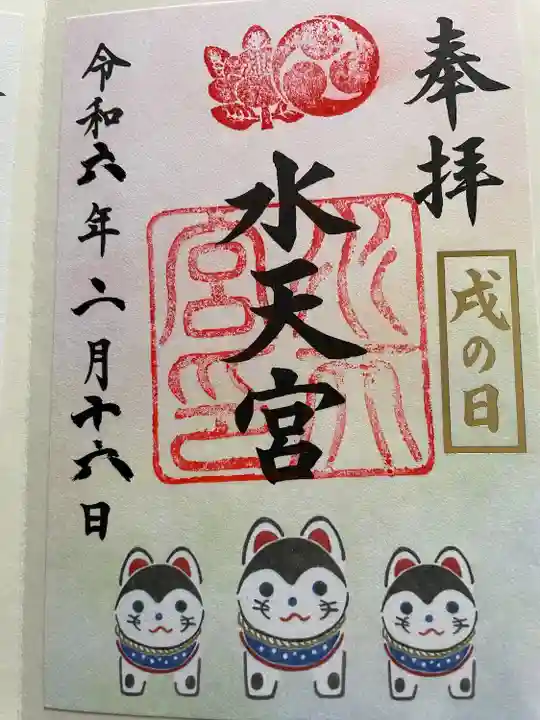 奉拝
戌の日
水天宮
令和六年二月十六日